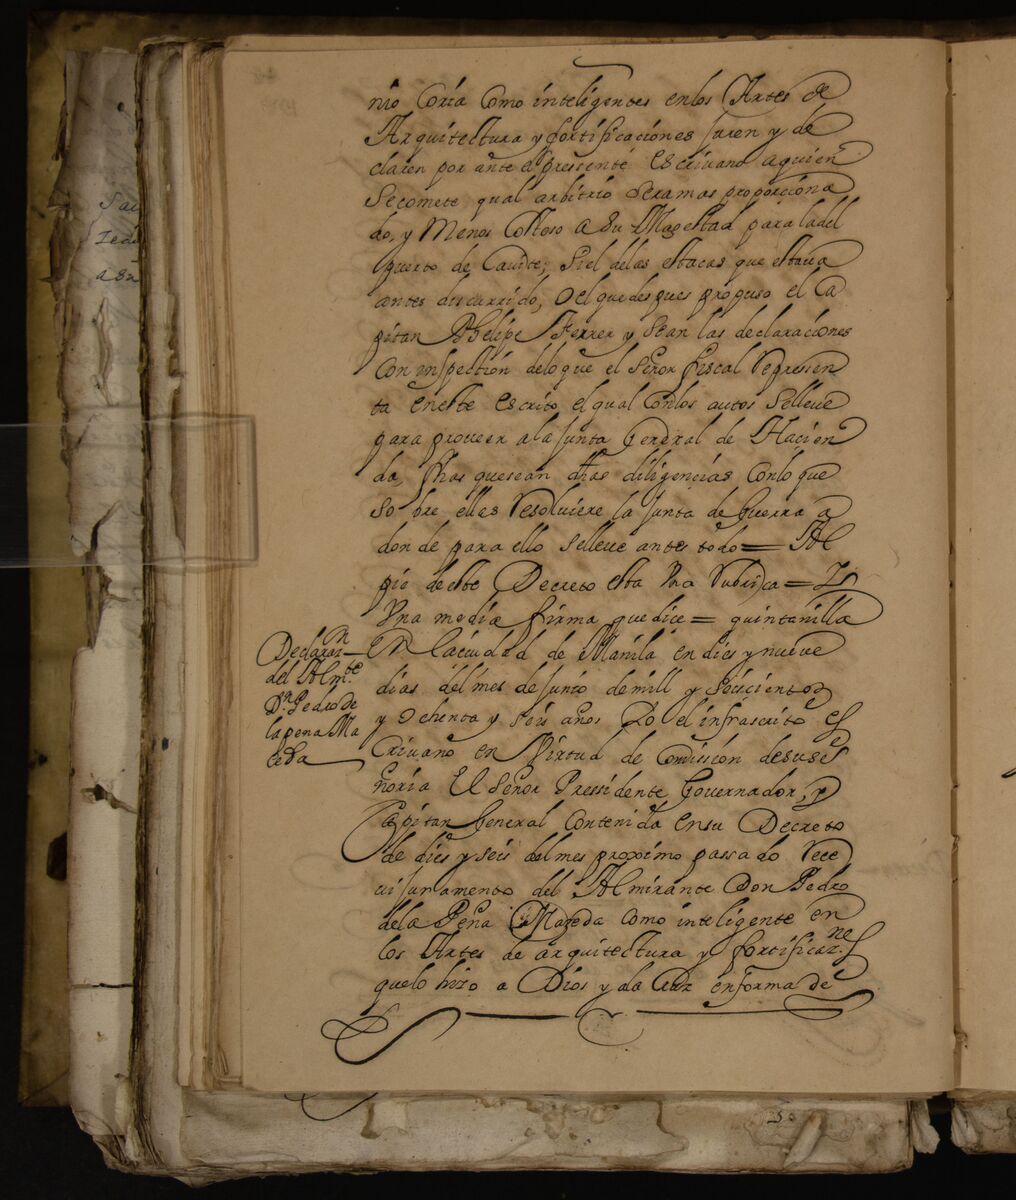 nio Coria Como inteligentes enlos Artes de
Arquitectura y fortificaciones juren y de
claren por ante el pressente Escrivano aquien
secomete qual arbitrio sera mas proporciona
do, y Menos Costoso a su Magestad para la del
puerto de Cavite; si el delas estacas que estava
antes discurrido, o el que despues propuso el Ca
pitan Phelipe Ferrer y sean las declaraciones
Con inspection delo que el señor fiscal Repressen
ta en este escrito el qual Conlos autos selleve
para proveer a la Junta General de Hacien
da, fhas quesean dhas diligencias Conlo que
sobre ellas Resolviere la Junta de Guerra a
donde para ello selleve ante todo = Al
pie de este Decreto esta Una Rubrica = Y
Una media firma que dice = quintanilla
Declaraz.n
del Alm.te
D.n Pedro de
la pena Ma
ceda
En la ciudad de Manila en dies y nueve
dias del mes de Junio de mill y seiscientos
y ochenta y seis años Yo el infrascrito es
Crivano en Virtud de Comission desuse
ñoria El señor Pressidente Governador, y
Capitan General Contenida en su Decreto
de dies y seis del mes proximo passado Rece
vi juramento del Almirante Don Pedro
dela Peña Mazeda Como inteligente en
los Artes de arquitectura y fortificaz.nes
quelo hizo a Dios y la Cruz en forma de